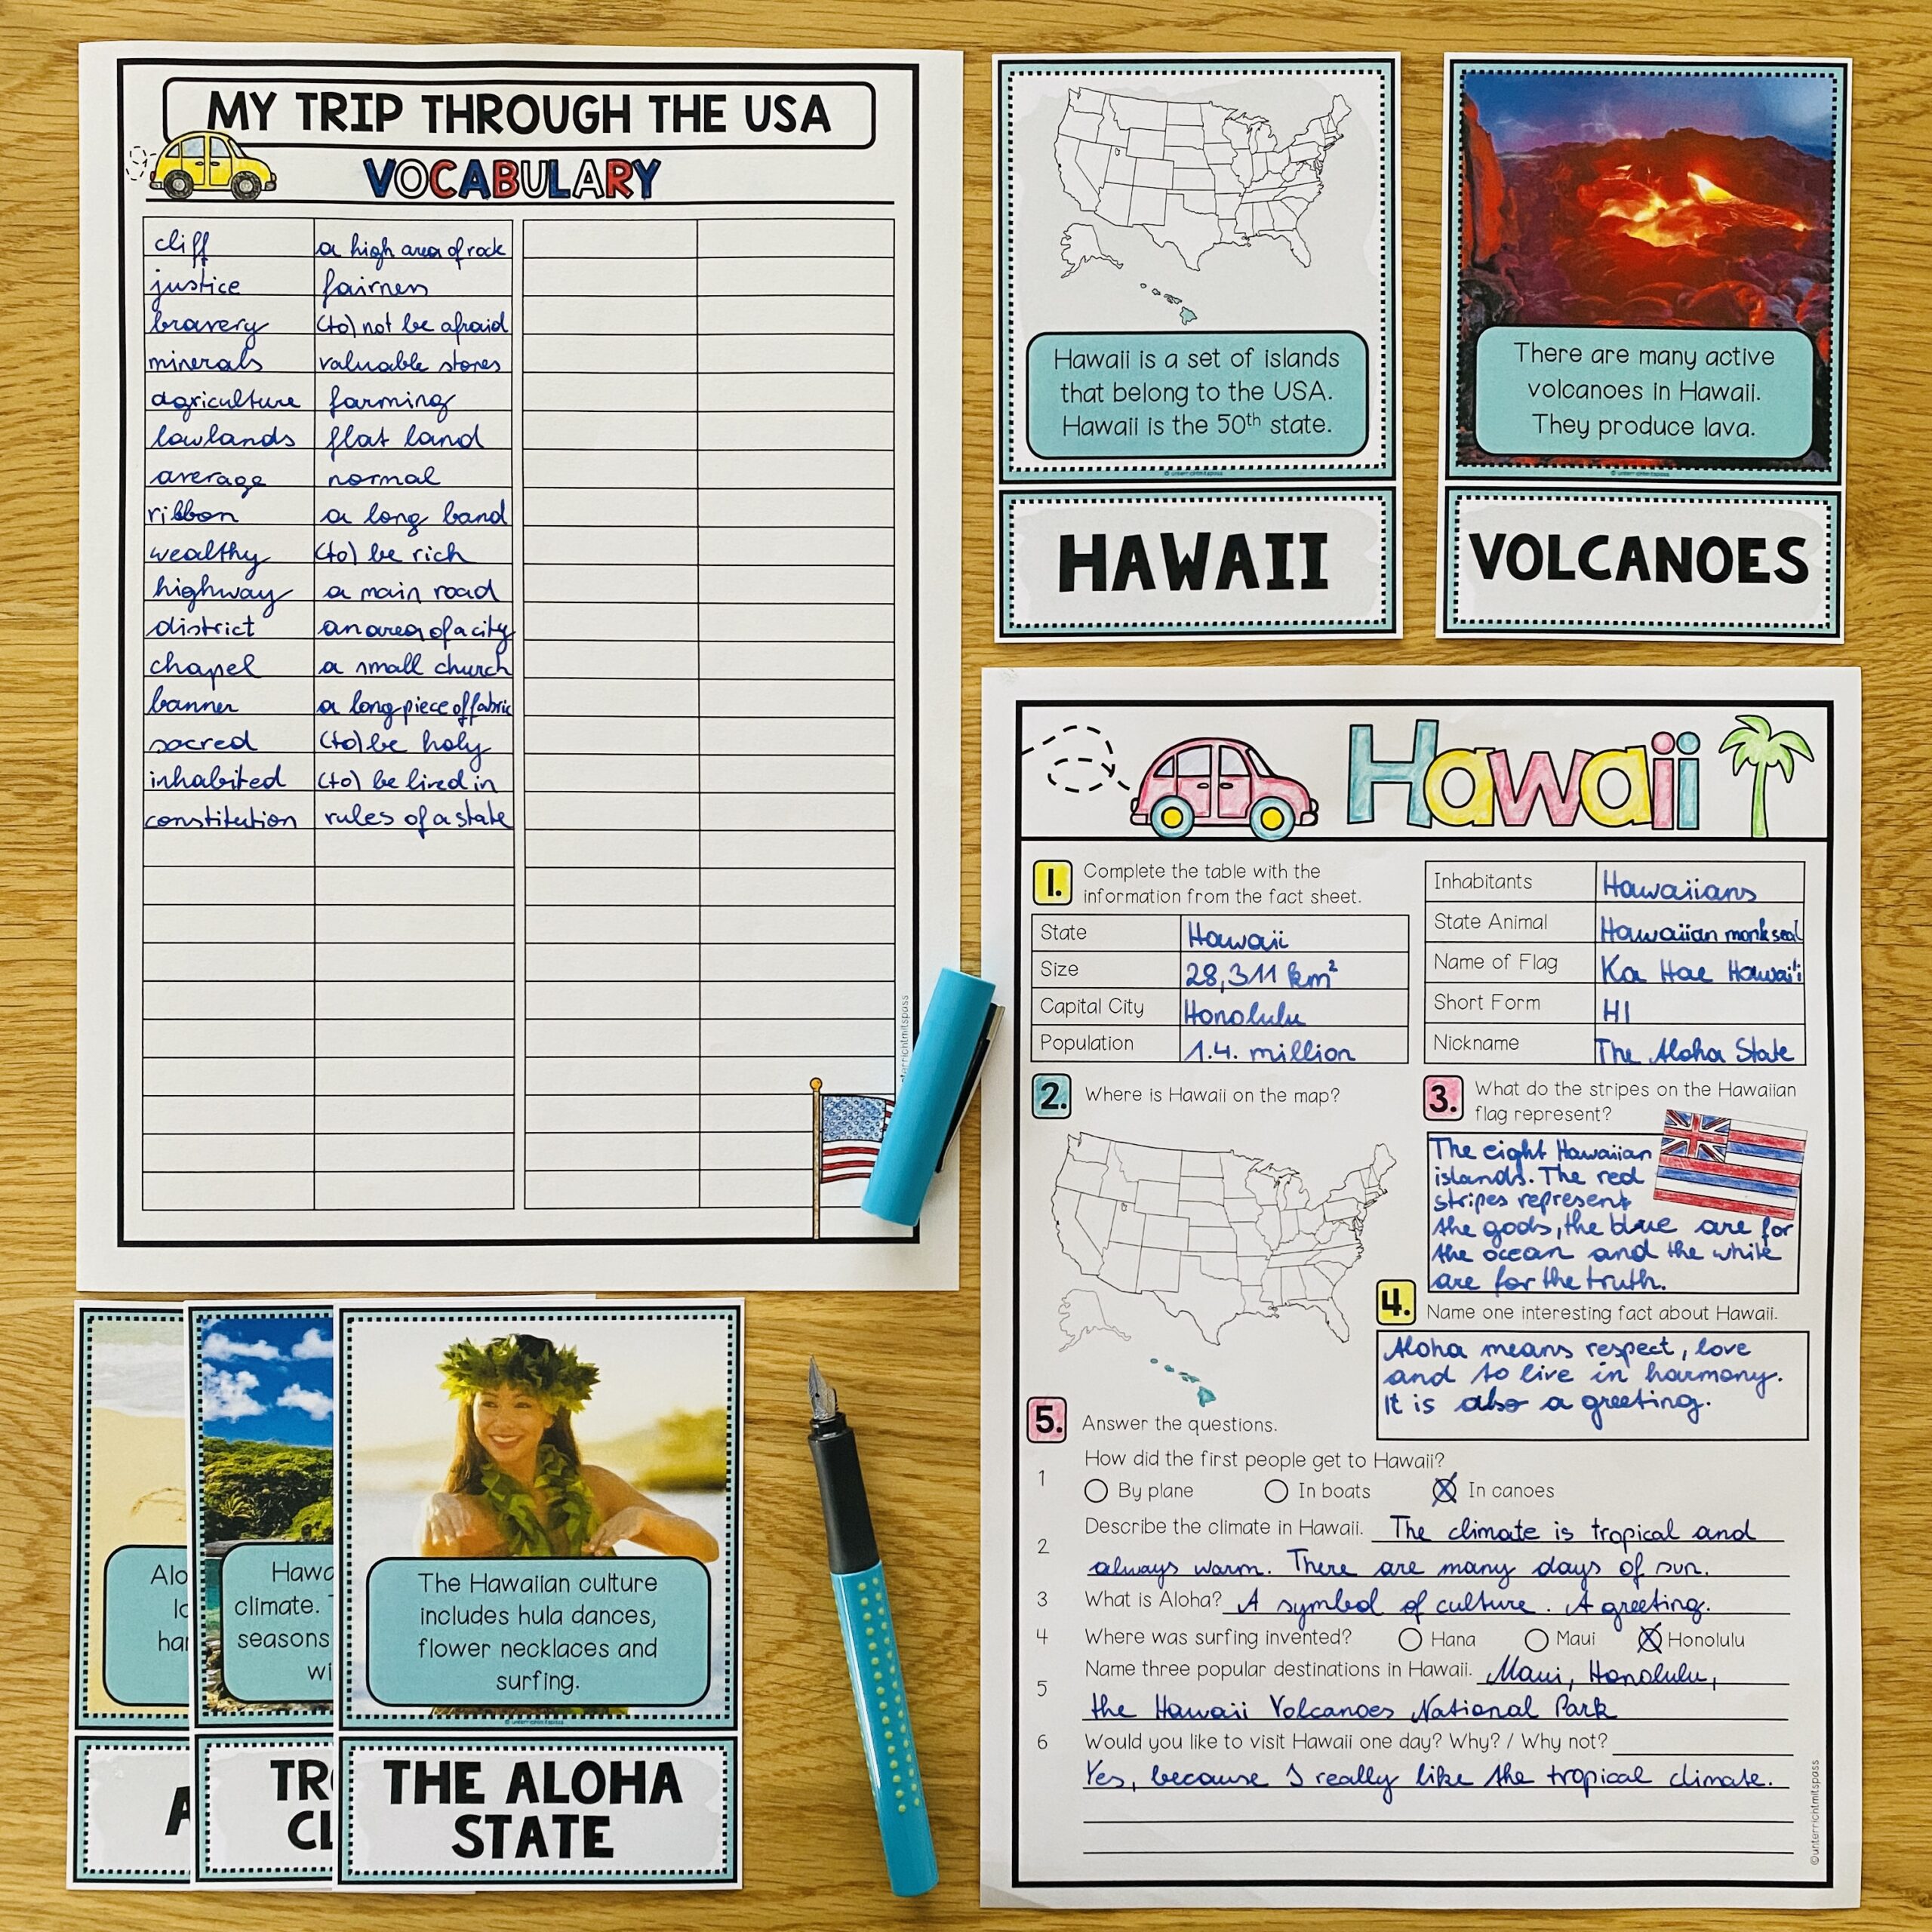 MY TRIP THROUGH THE USA
VOCABULARY
cliff a high area of rock
justice fairness
bravery (to) not be afraid
minerals valuable stones
agriculture farming
lowlands flat land
average normal
ribbon a long band
wealthy (to) be rich
highway a main road
district an area of a city
chapel a small church
banner a long piece of fabric
sacred (to) be holy
inhabited (to) be lived in
constitution rules of a state
Hawaii is a set of islands
that belong to the USA.
Hawaii is the 50th state.
© unterrichtmitspass
HAWAII
There are many active
volcanoes in Hawaii.
They produce lava.
© unterrichtmitspass
VOLCANOES
Hawaii
1. Complete the table with the
information from the fact sheet.
State Hawaii
Size 28,311 km²
Capital City Honolulu
Population 1.4. million
Inhabitants Hawaiians
State Animal Hawaiian monk seal
Name of Flag Ka Hae Hawai'i
Short Form HI
Nickname The Aloha State
2. Where is Hawaii on the map?
3. What do the stripes on the Hawaiian
flag represent?
The eight Hawaiian
islands. The red
stripes represent
the gods, the blue are for
the ocean and the white
are for the truth.
4. Name one interesting fact about Hawaii.
Aloha means respect, love
and to live in harmony.
It is also a greeting.
5. Answer the questions.
1 How did the first people get to Hawaii?
By plane In boats X In canoes
2 Describe the climate in Hawaii. The climate is tropical and
always warm. There are many days of sun.
3 What is Aloha? A symbol of culture. A greeting.
4 Where was surfing invented? Hana Maui X Honolulu
5 Name three popular destinations in Hawaii. Maui, Honolulu,
the Hawaii Volcanoes National Park
6 Would you like to visit Hawaii one day? Why? / Why not?
Yes, because I really like the tropical climate.
©unterrichtmitspass
Alo
lo
har
A
Hawa
climate. T
seasons
wi
TRO
CL
The Hawaiian culture
includes hula dances,
flower necklaces and
surfing.
© unterrichtmitspass
THE ALOHA
STATE